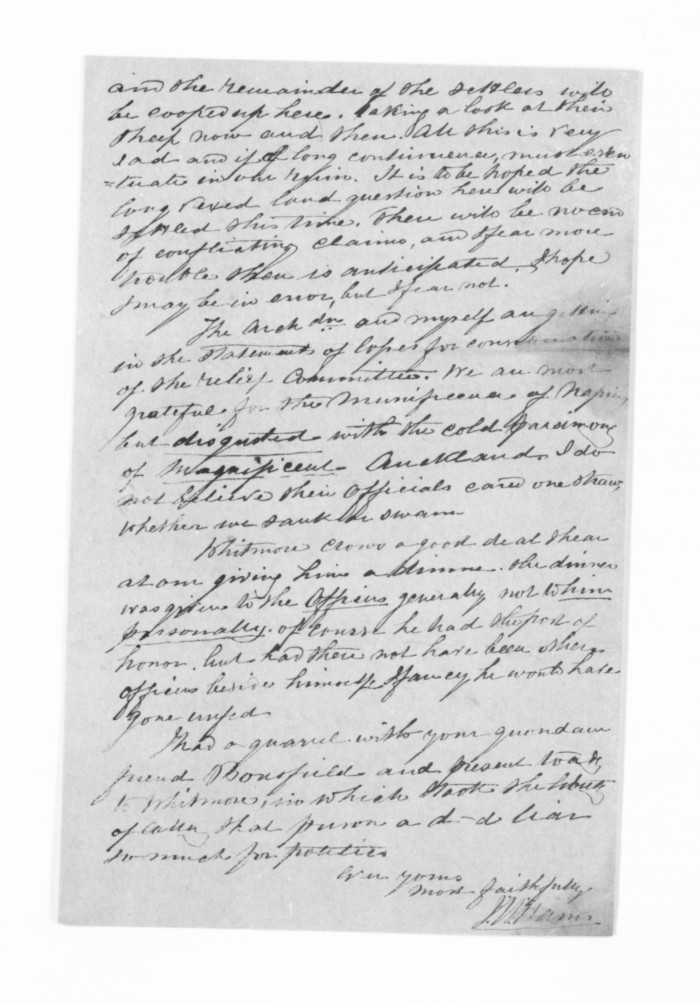 and the remainder of the settlers will
be cooped up here. Taking a look at their
sheep now and then. All this is very
sad and if of long continuence, must even
=tuate in our ruin. It is to be hoped the
long vexed land question here will be
settled this time. There will be no end
of conflicting claims, and I fear more
trouble then is anticipated. I hope
I may be in error, but I fear not.
The Arch dn and myself are getting
in the statements of losses for consideration
of the relief Committee. We are most
grateful for the munificence of Napier,
but disgusted with the cold parsimony
of Magnificent Auckland. I do
not believe their Officials cared one straw,
whether we sank or swam
Whitmore crows a good deal I hear
at our giving him a dinner. The dinner
was given to the Officers generally not to him
personally. of course he had the post of
honor, but had there not have been other
officers beside himself I fancy he wont have
gone unfed
I had a quarrel with your quondam
friend Bousfield and present to
to Whitmore, in which I took the liberty
of calling that person a d-d liar
so much for politics
Ever yours
most faithfully